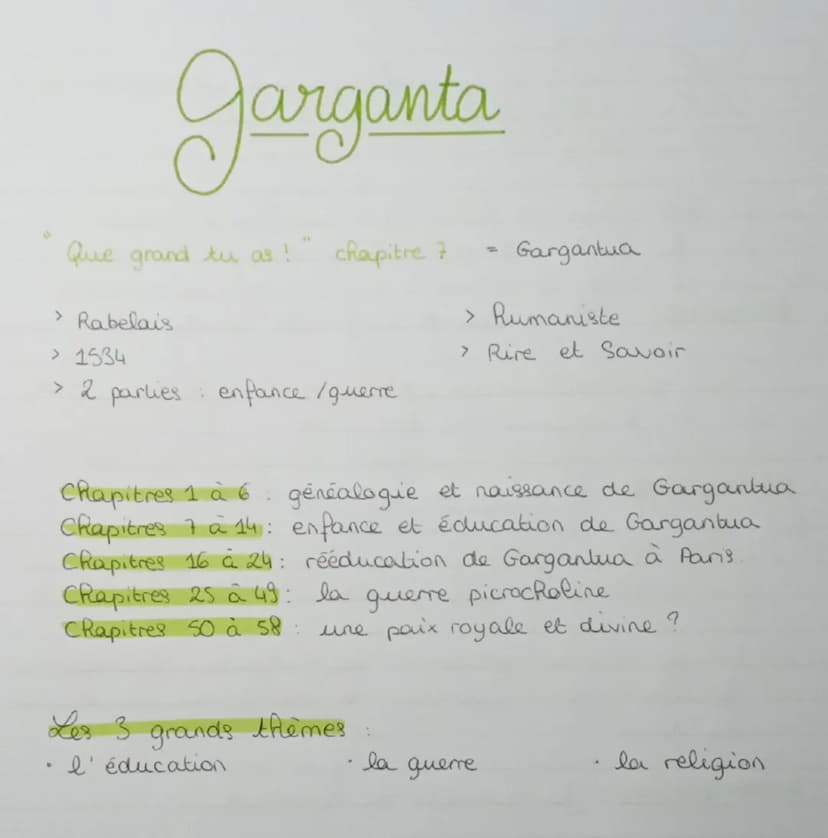 Garganta
"Que grand tu as !" chapitre 7 = Gargantua
> Rabelais
> 1534
> 2 parties : enfance / guerre
> Humaniste
> Rire et Savoir
Chapitres 1 à 6 : généalogie et naissance de Gargantua
Chapitres 7 à 14 : enfance et éducation de Gargantua
Chapitres 16 à 24 : rééducation de Gargantua à Paris.
Chapitres 25 à 49 : la guerre picrocholine
Chapitres 50 à 58 : une paix royale et divine ?
Les 3 grands thèmes :
· l'éducation · la guerre · la religion